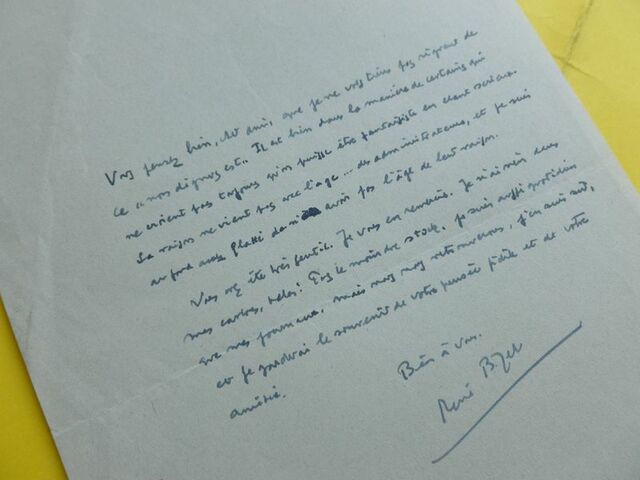 Vous pensez bien, cher ami, que je ne vous tiens pas rigueur de
ce "nos dignus est". Il est bien dans la manière de certains qui
ne croient pas toujours qu'on puisse être fantaisiste en étant sérieux.
La raison ne vient pas avec l'âge... des administrateurs, et je suis
au fond assez flatté de n' avoir pas l'âge de leur raison.
Vous avez été très gentil. Je vous en remercie. Je n'ai rien dans
mes cartons, hélas! Pas le moindre stock. Je suis aussi quotidien
que mes journaux, mais nous nous retrouverons, j'en suis sûr,
et je garderai le souvenir de votre pensée fidèle et de votre
amitié.
Bien à vous.
René